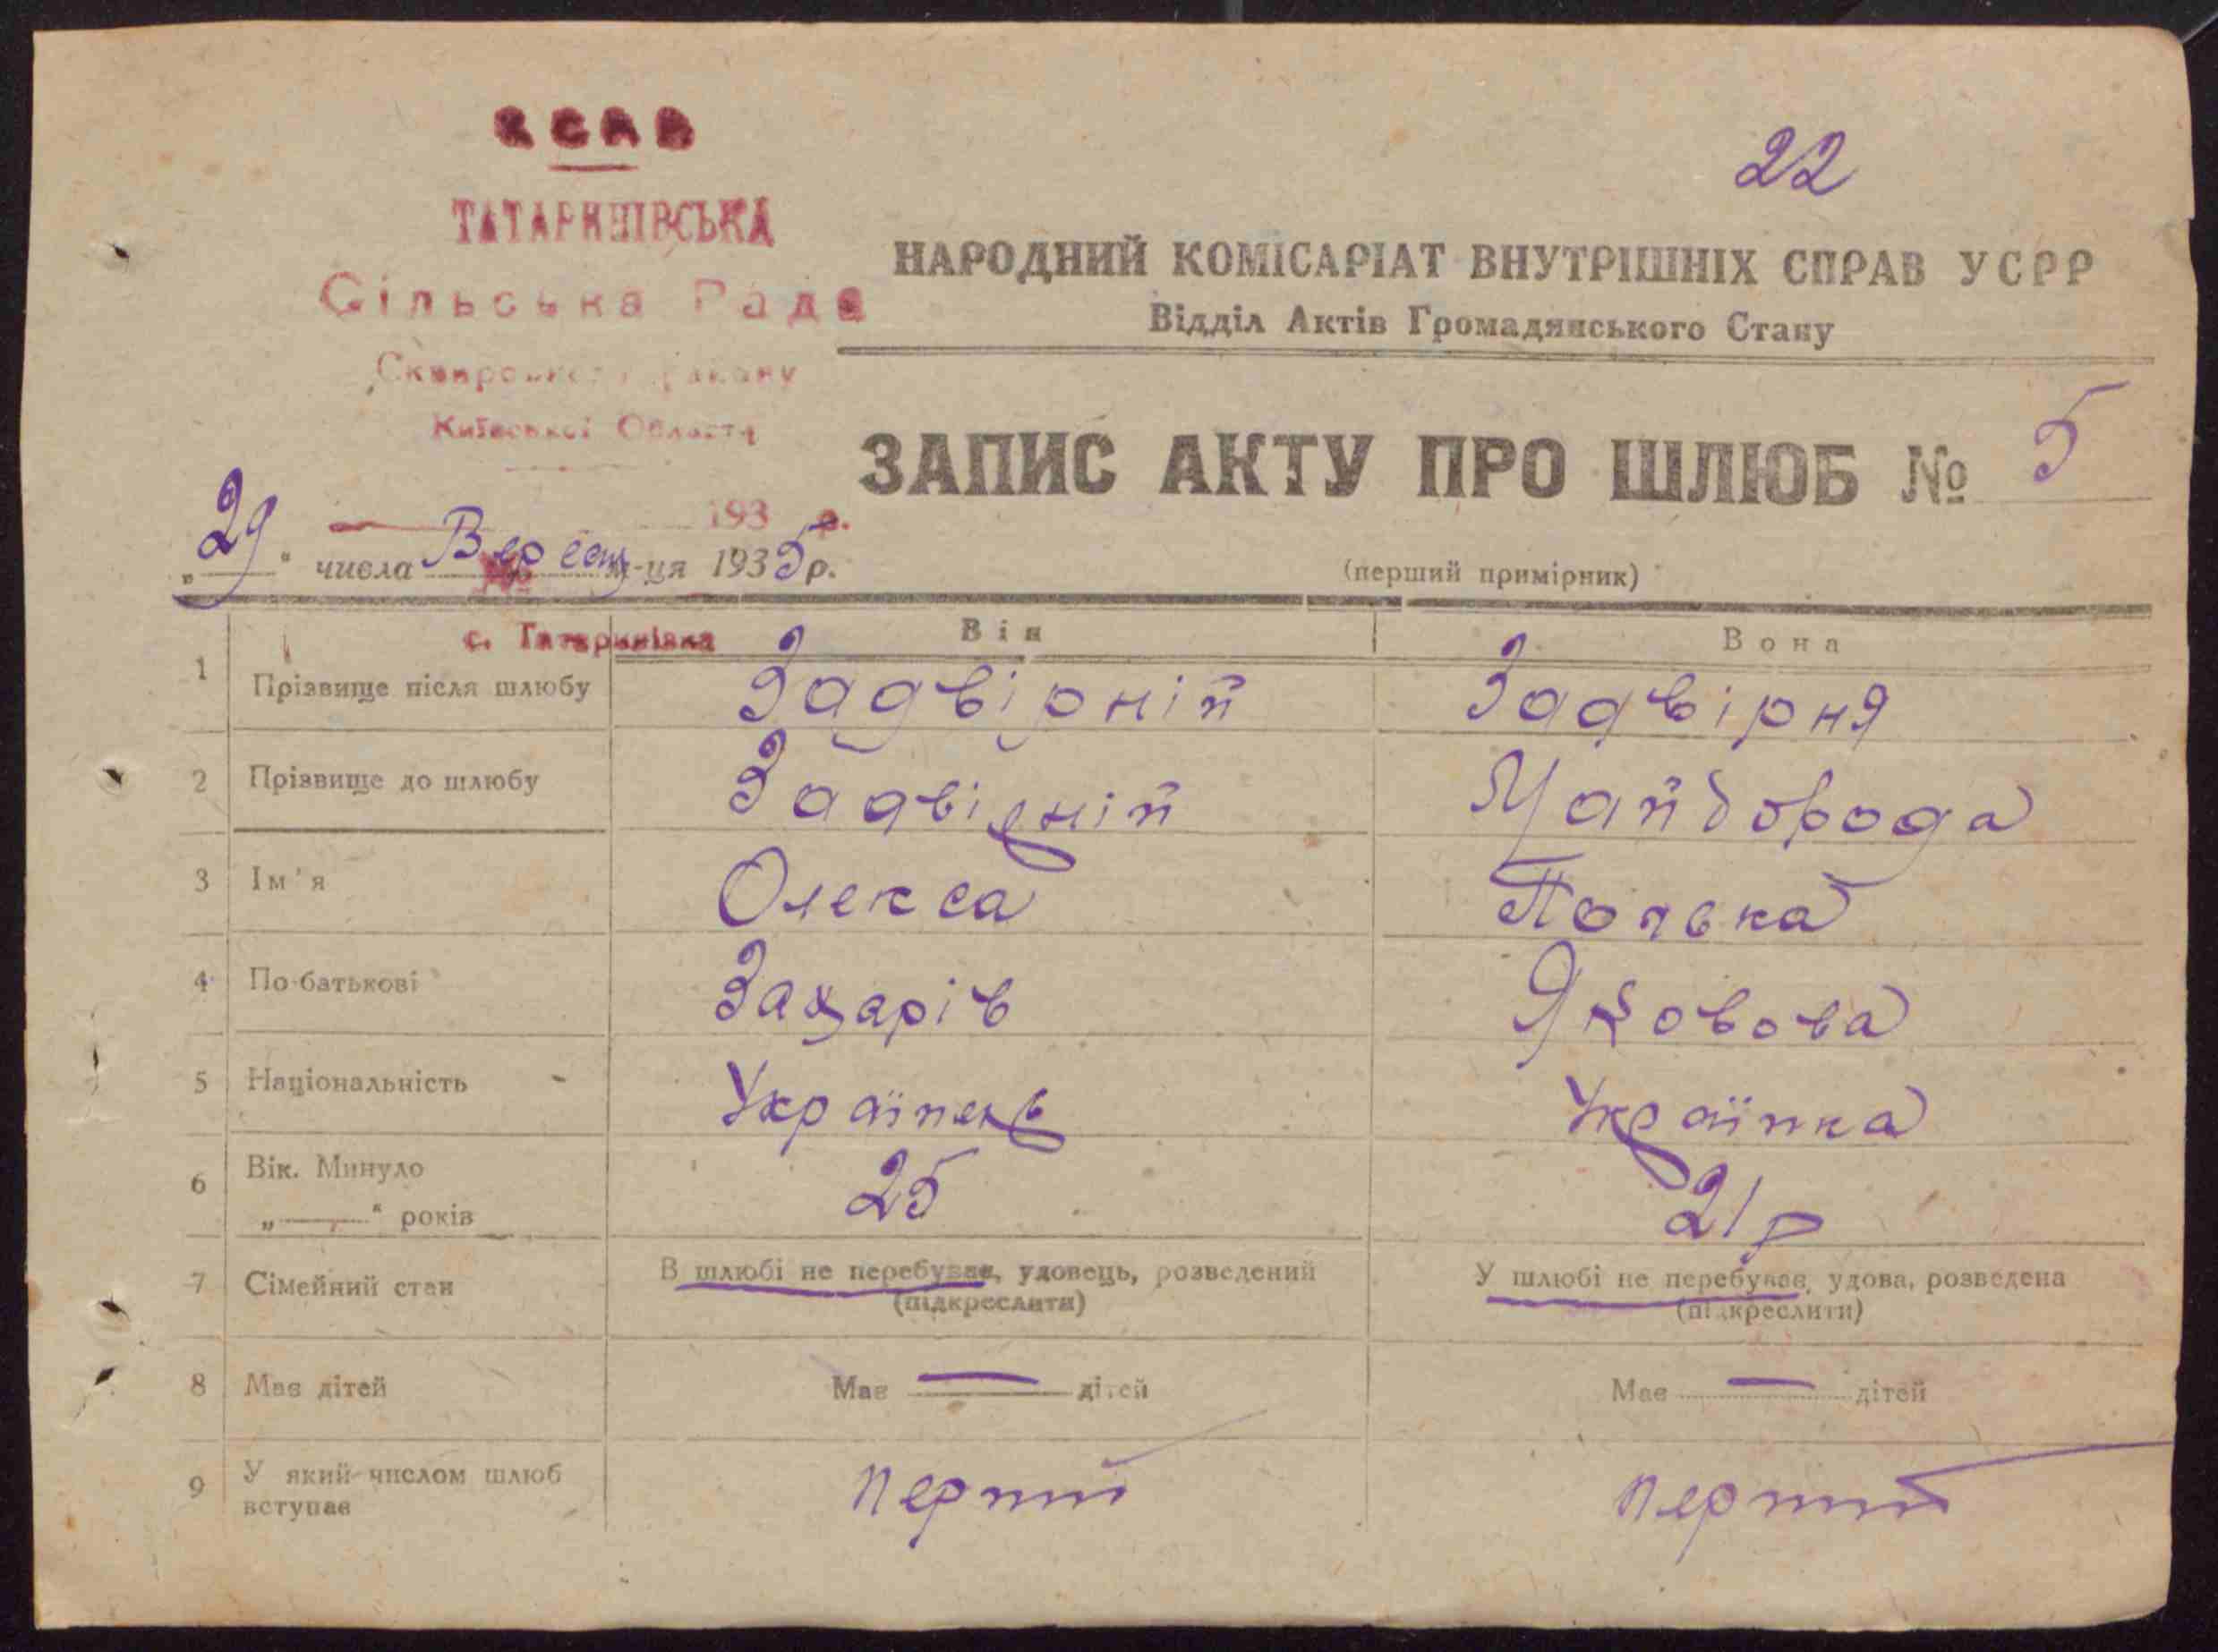 УСРР
22
ТАТАРИНІВСЬКА
Сільська Рада
Сквирського району
Київської Области
НАРОДНИЙ КОМІСАРІАТ ВНУТРІШНІХ СПРАВ УСРР
Відділ Актів Громадянського Стану
ЗАПИС АКТУ ПРО ШЛЮБ № 5
193 р.
„29“ числа Вересня м-ця 1935 р.
(перший примірник)
с. Татаринівка
Він Вона
1 Прізвище після шлюбу Задвірній Задвірня
2 Прізвище до шлюбу Задвірній Майборода
3 Ім'я Олекса Полька
4 По-батькові Захарів Яковова
5 Національність Українець Українка
6 Вік. Минуло „—“ років 25 21 р
7 Сімейний стан В шлюбі не перебував, удовець, розведений (підкреслити) У шлюбі не перебував, удова, розведена (підкреслити)
8 Має дітей Має — дітей Має — дітей
9 У який числом шлюб вступає перший перший